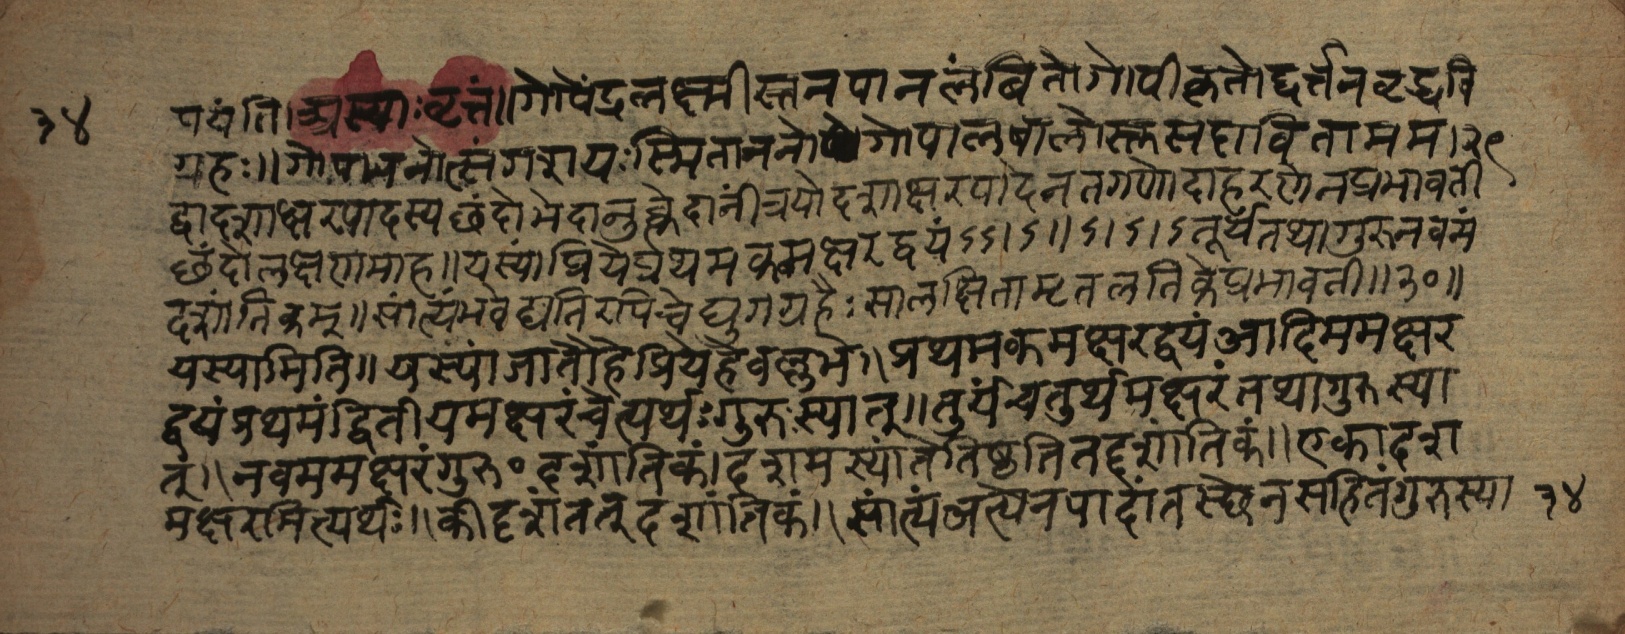 ३४ पद्यंति। अस्याः वृत्तं॥ गोपेंद्रलक्ष्मीस्तनपानलंबितो गोपीकृतोद्वर्त्तनवृद्धवि
ग्रहः॥ गोपांगनोत्संगशयः स्मिताननो गोपालबालोस्तु सदाविता मम। २९
द्वादशाक्षरपादस्य छंदोभेदानुक्त्वेदानीं त्रयोदशाक्षरपादेन तगणोदाहरणेन प्रभावती
छंदोलक्षणमाह॥ यस्यां प्रिये प्रथमकमक्षरद्वयं ऽऽ।ऽ॥ऽ।ऽ।ऽ तूर्यं तथा गुरु नवमं
दशांतिकम्॥ सांत्यं भवेद्यतिरपि चेद्युगग्रहैः सालक्षितामृतलतिके प्रभावती॥ ३०॥
यस्यामिति॥ यस्यां जातौ हे प्रिये हे वल्लभे॥ प्रथमकमक्षरद्वयं आदिममक्षर
द्वयं प्रथमं द्वितीयमक्षरं चेत्यर्थः गुरु स्यात्॥ तुर्यं चतुर्थमक्षरं तथा गुरु स्या
त्॥ नवममक्षरं गुरु॰ दशांतिकं। दशमस्यांते तिष्ठति तद्दशांतिकं॥ एकादश
मक्षरमित्यर्थः॥ कीदृशं तत् दशांतिकं॥ सांत्यं अत्येन पादांतस्थेन सहितं गुरु स्या ३४